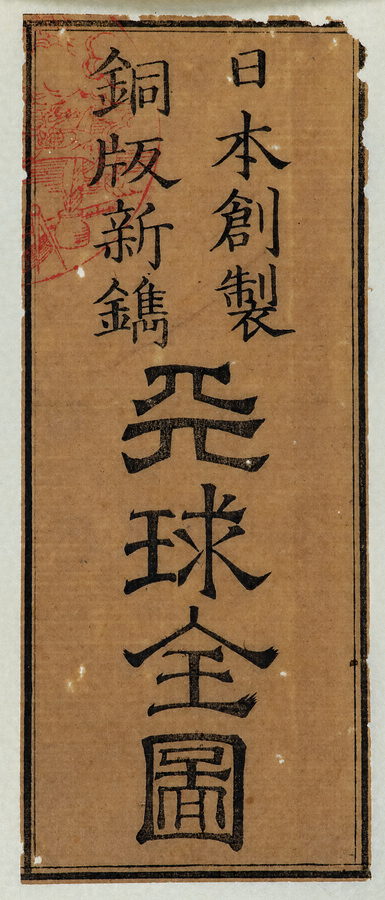 日本創製
銅版新鐫
天球全圖